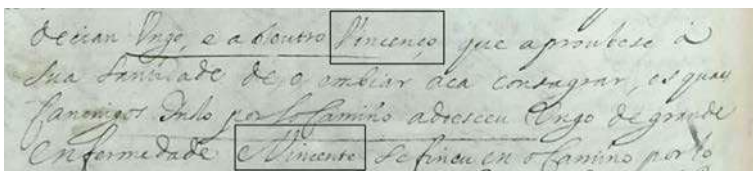 decian Ungo, e a o outro Vincenço que aproubese â
sua Santidade de o embiar aca consagrar, es quaes
Canonigos Indo por lo Camiño adoesceu Ungo de grande
enfermedade Vincente se fincu en o Camiño por lo